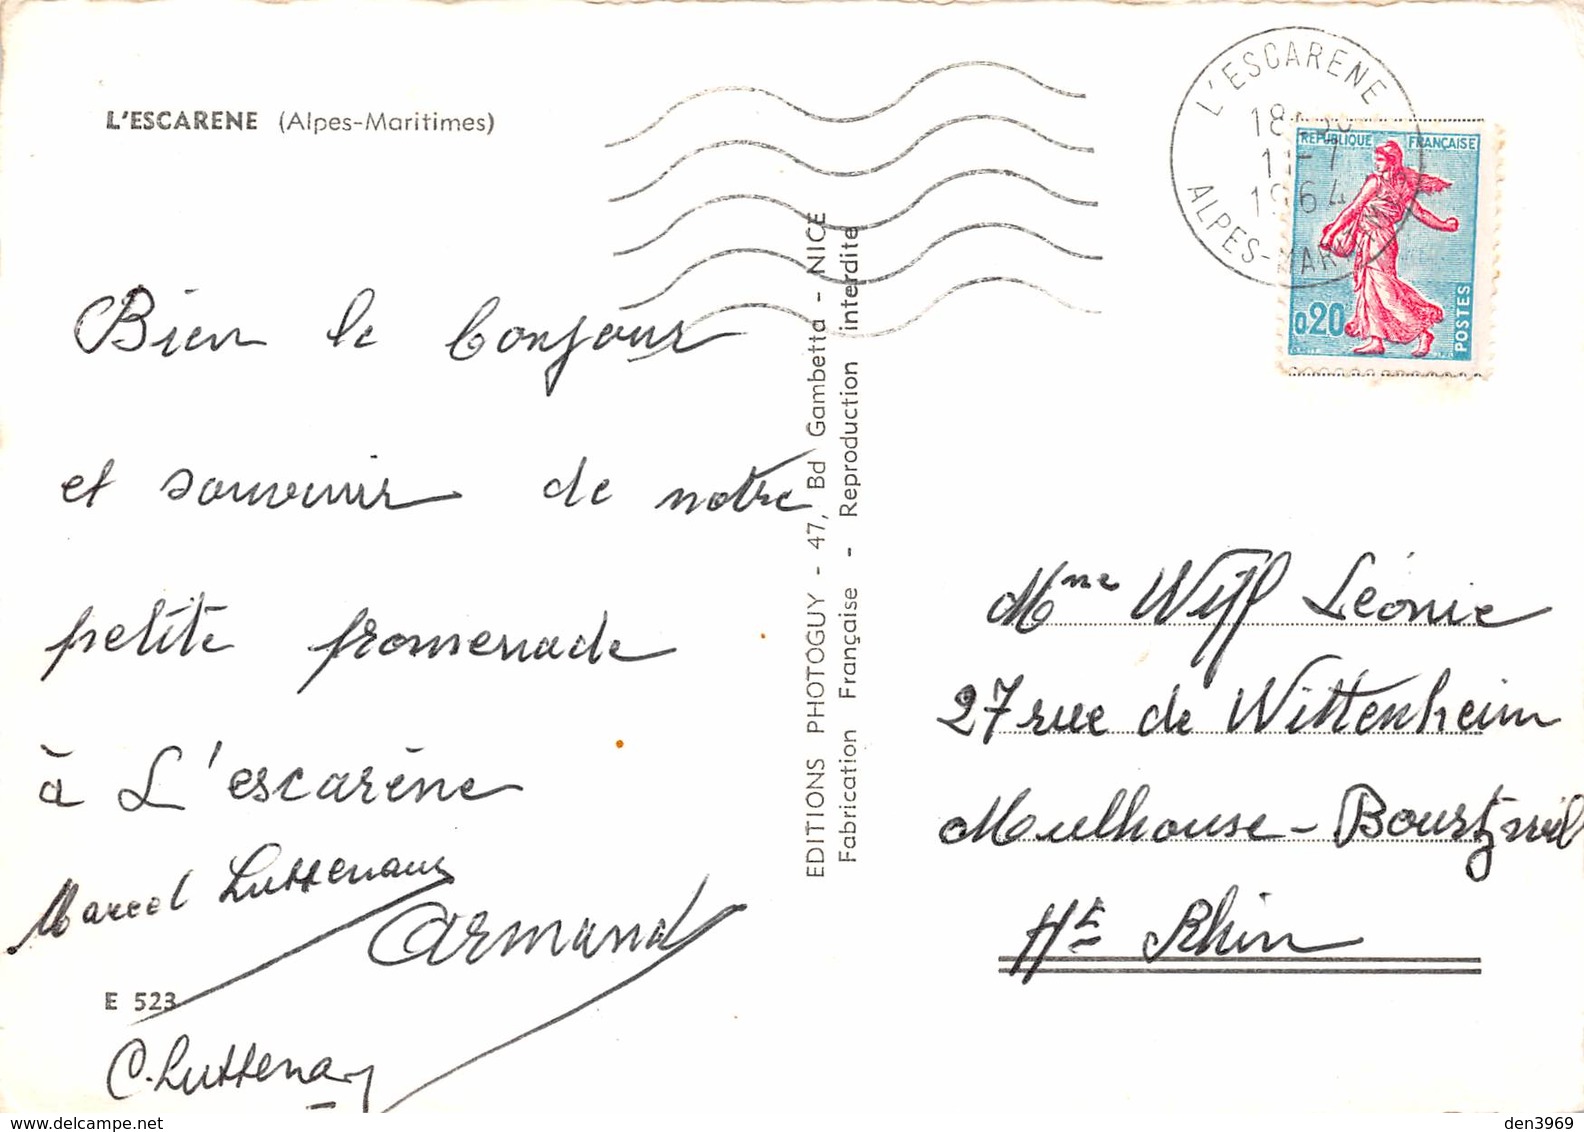 L'ESCARENE (Alpes-Maritimes)
Bien le bonjour
et souvenir de notre
petite promenade
à L'escarène
Marcel Luttenauer
Armand
E 523
C. Luttenau
EDITIONS PHOTOGUY - 47, Bd Gambetta - NICE
Fabrication Française - Reproduction interdite
L'ESCARENE
1964
ALPES-MAR
REPUBLIQUE FRANÇAISE
0,20
POSTES
Mme Wiff Léonie
27 rue de Wittenheim
Mulhouse - Bourtzwil
Ht Rhin
delcampe.net
den3969